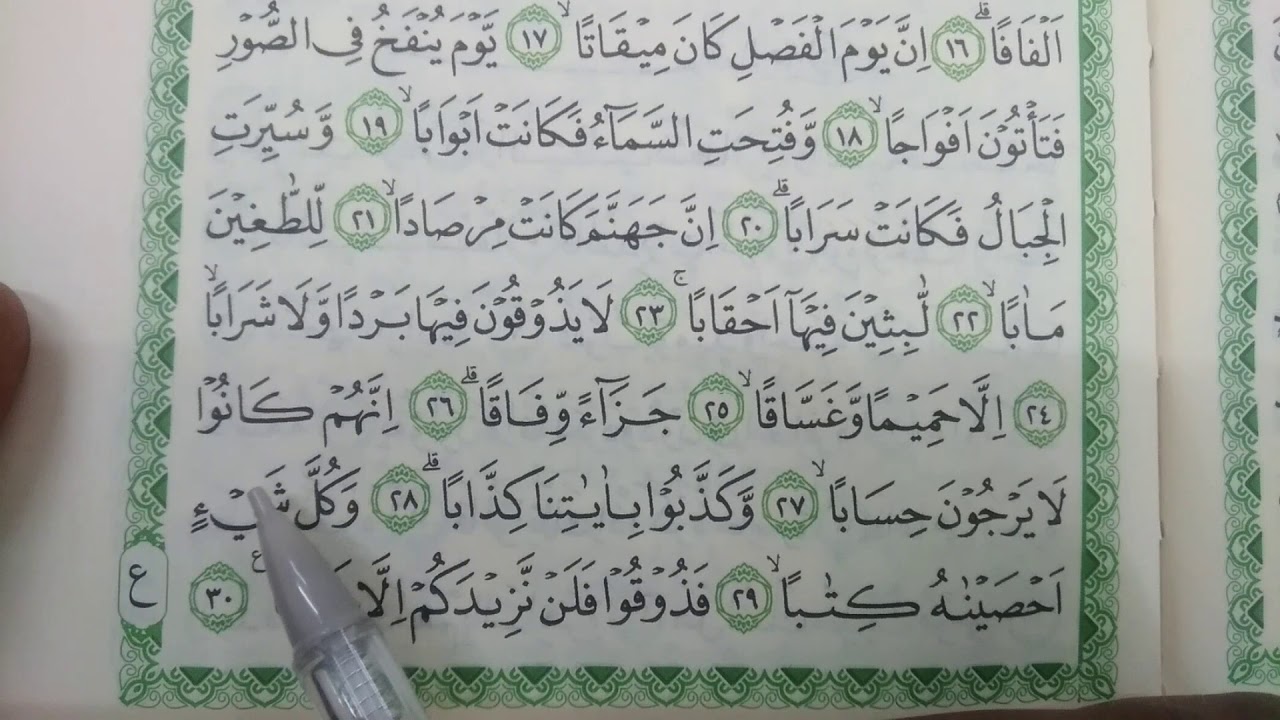 اَلْفَافًاۗ ١٦ اِنَّ يَوْمَ الْفَصْلِ كَانَ مِيْقَاتًاۙ ١٧ يَّوْمَ يُنْفَخُ فِى الصُّوْرِ
فَتَأْتُوْنَ اَفْوَاجًاۙ ١٨ وَّفُتِحَتِ السَّمَآءُ فَكَانَتْ اَبْوَابًاۙ ١٩ وَّسُيِّرَتِ
الْجِبَالُ فَكَانَتْ سَرَابًاۗ ٢٠ اِنَّ جَهَنَّمَ كَانَتْ مِرْصَادًاۙ ٢١ لِّلطّٰغِيْنَ
مَاٰبًاۙ ٢٢ لّٰبِثِيْنَ فِيْهَآ اَحْقَابًاۚ ٢٣ لَا يَذُوْقُوْنَ فِيْهَا بَرْدًا وَّلَا شَرَابًاۙ
٢٤ اِلَّا حَمِيْمًا وَّغَسَّاقًاۙ ٢٥ جَزَآءً وِّفَاقًاۗ ٢٦ اِنَّهُمْ كَانُوْا
لَا يَرْجُوْنَ حِسَابًاۙ ٢٧ وَّكَذَّبُوْا بِاٰيٰتِنَا كِذَّابًاۗ ٢٨ وَكُلَّ شَيْءٍ
اَحْصَيْنٰهُ كِتٰبًاۙ ٢٩ فَذُوْقُوْا فَلَنْ نَّزِيْدَكُمْ اِلَّا ٣٠
ع